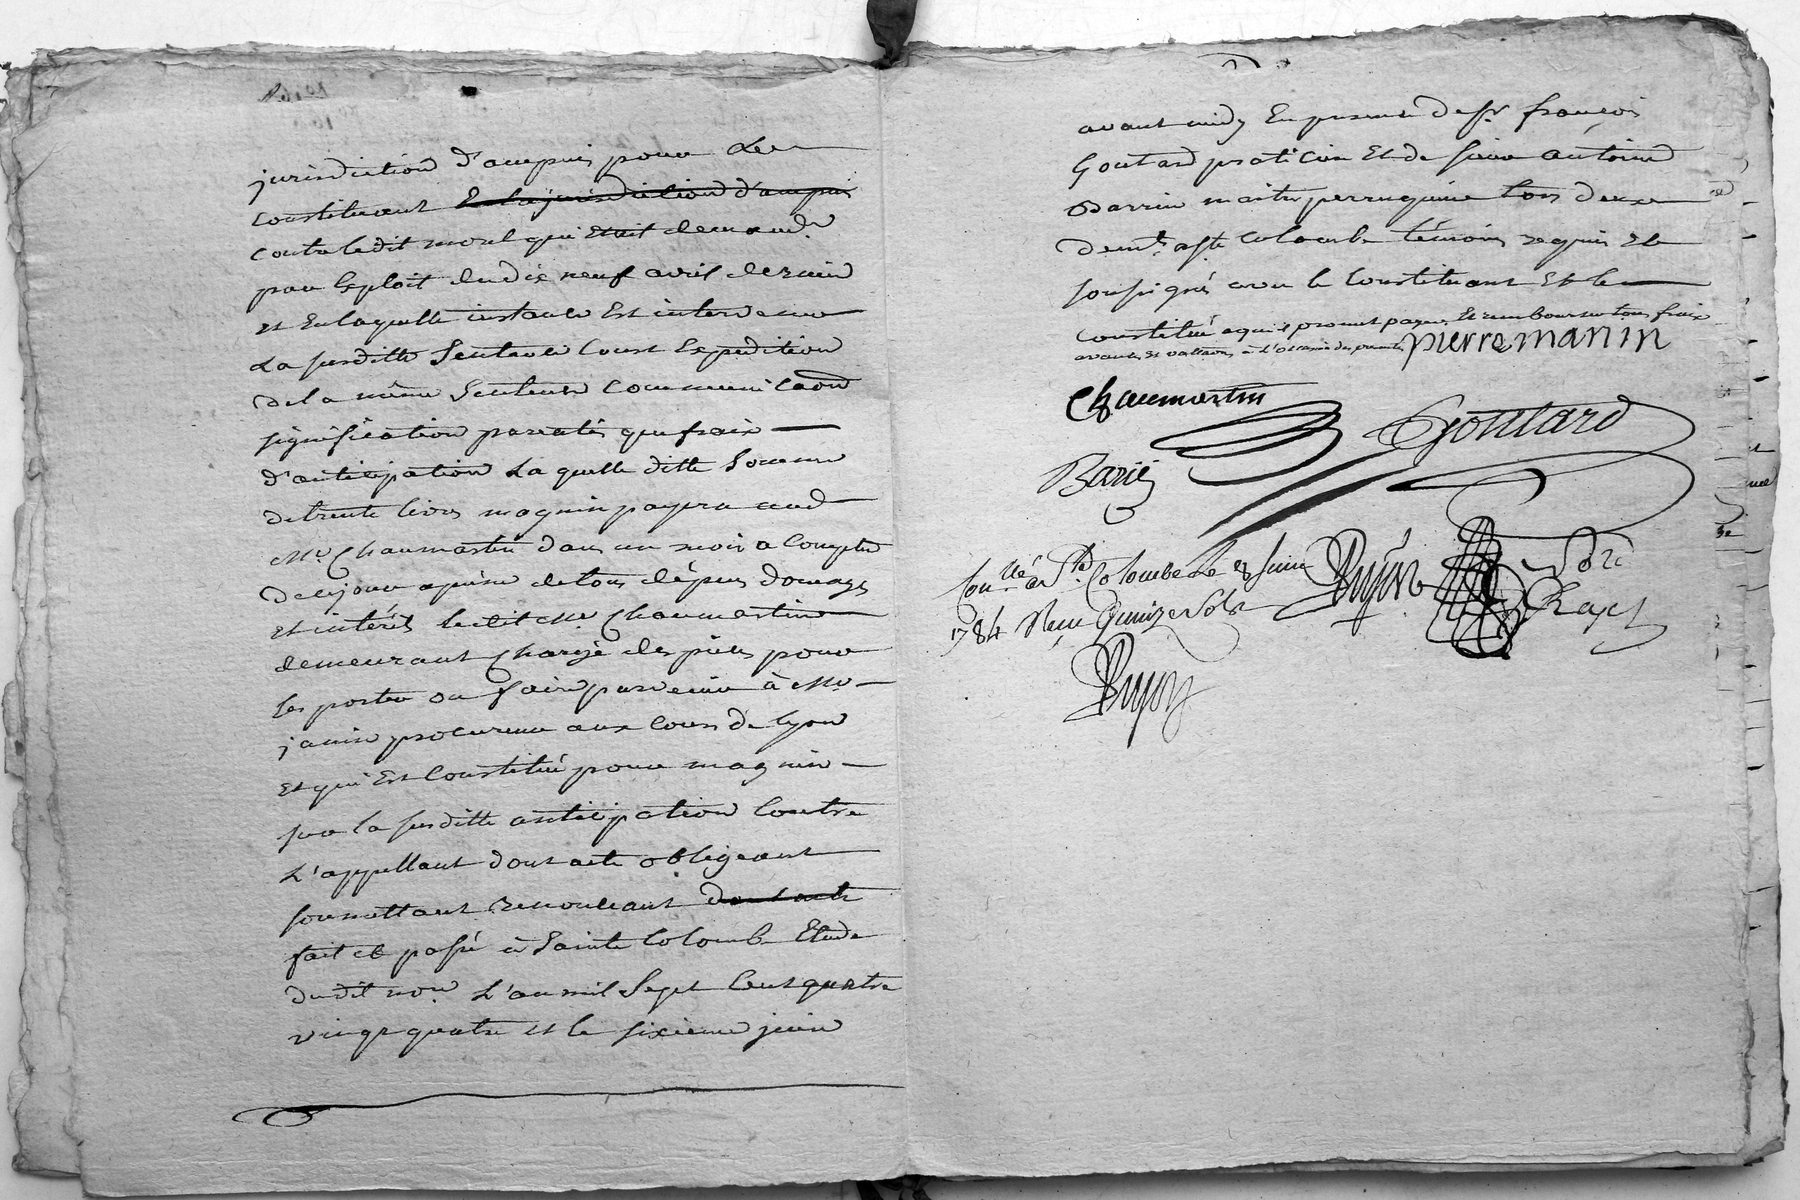 jurisdiction d'ampuis pour le
constituant Et la jurisdiction d'ampuis
contre ledit morel qui Etait demandr
par Exploit du dix neuf avril dernier
et En laquelle instance Est intervenue
La susditte Sentence Cout Expedition
de la même Sentence communicaon
signification pareatis que fraix
d'anticipation Laquelle ditte Somme
de trente livres magnin payera aud
Me Chaumartin dans un mois a Compter
de ce jour a peine de tous dépens domages
Et intérêts ledit Me Chaumartin
demeurant Chargé des pièces pour
les porter ou faire parvenir à Me
janin procureur aux Cours de lyon
Et qui Est Constitué pour magnin
sur la susditte anticipation Contre
L'appellant dont acte obligeant
soumettant renonceant dont acte
fait et passé à Sainte Colombe Etude
dudit nore L'an mil Sept Cent quatre
vingt quatre et le sixieme juin
avant midy En presence de sr françois
Goutard praticien Et de sieur antoine
Barrin maitre perruquier tous deux
demts a ste Colombe témoins requis et
soussignés avec le Constituant Et le
constitué aqui promet payer Et rembourser tous fraix
avances et vaccations à L'occasion des presentes pierre manin
Chaumartin
Goutard
Barin
Conllé a Ste Colombe Le 8 juin
1784 Reçu Quinze Sols
Pujon